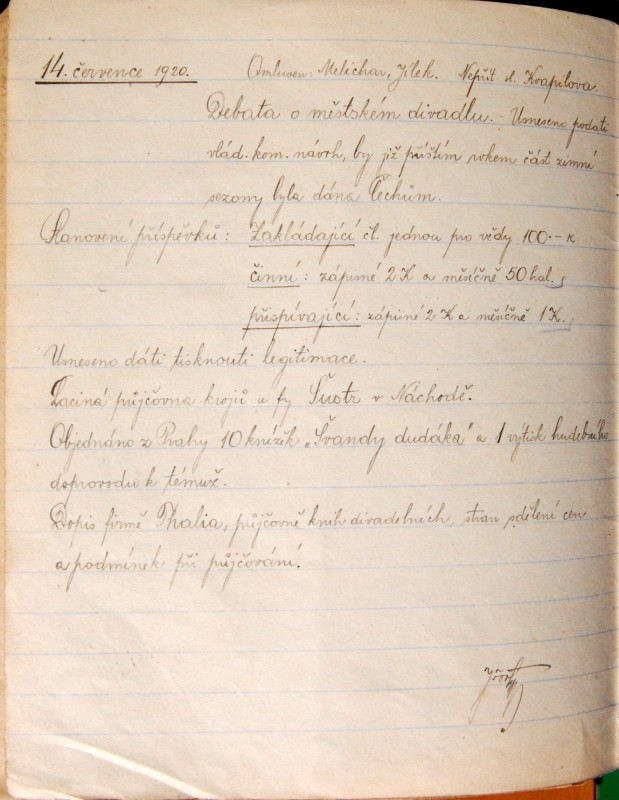 14. července 1920. Omluven: Melichar, Jílek. Nepřít. sl. Kvapilova.
Debata o městském divadlu. - Usneseno podati
vlád. kom. návrh, by již příštím rokem část zimní
sezony byla dána Čechům.
Stanovení příspěvků: Zakládající čl. jednou pro vždy 100·- K
činní: zápisné 2 K a měsíčně 50 hal.,
přispívající: zápisné 2 K a měsíčně 1 K.,
Usneseno dáti tisknouti legitimace.
Laciná půjčovna krojů u fy Šustr v Náchodě.
Objednáno z Prahy 10 knížek „Švandy dudáka" a 1 výtisk hudebního
doprovodu k témuž.
Dopis firmě Thalia, půjčovně knih divadelních, stran sdělení cen
a podmínek při půjčování.